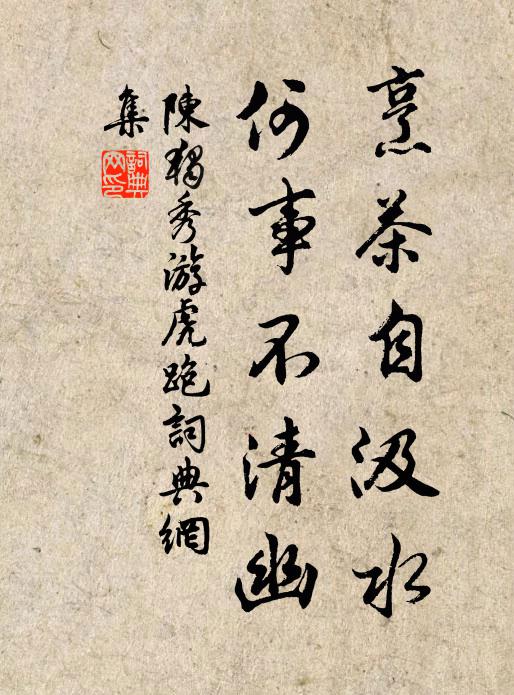 烹茶自汲水
何事不清幽
陳獨秀游虎跑詞典網
集
詞典
网印